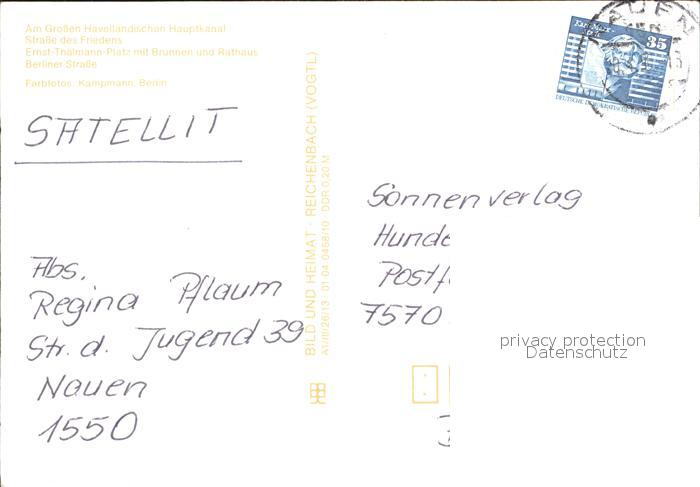 Am Großen Havelländischen Hauptkanal
Straße des Friedens
Ernst-Thälmann-Platz mit Brunnen und Rathaus
Berliner Straße
Farbfotos: Kampmann, Berlin
SATELLIT
Abs.
Regina Pflaum
Str. d. Jugend 39
Nauen
1550
BILD UND HEIMAT · REICHENBACH (VOGTL)
A1/III/26/13 · 01 04 0458/10 · DDR 0,20 M
NAUEN
35
DEUTSCHE DEMOKRATISCHE REPUBLIK
Sonnenverlag
Hunde
Postf
7570
privacy protection
Datenschutz